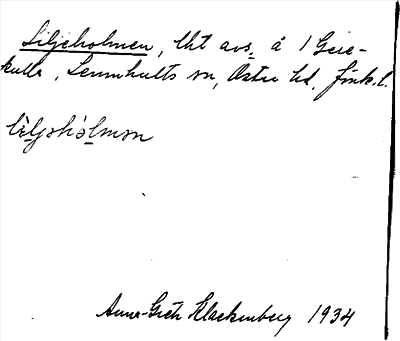 Liljeholmen, lht avs. å 1 Geie-
kulla, Lemnhults sn, Östra hd, Jönk. l.
lìljəhòlmən
Anna-Greta Klackenberg 1934